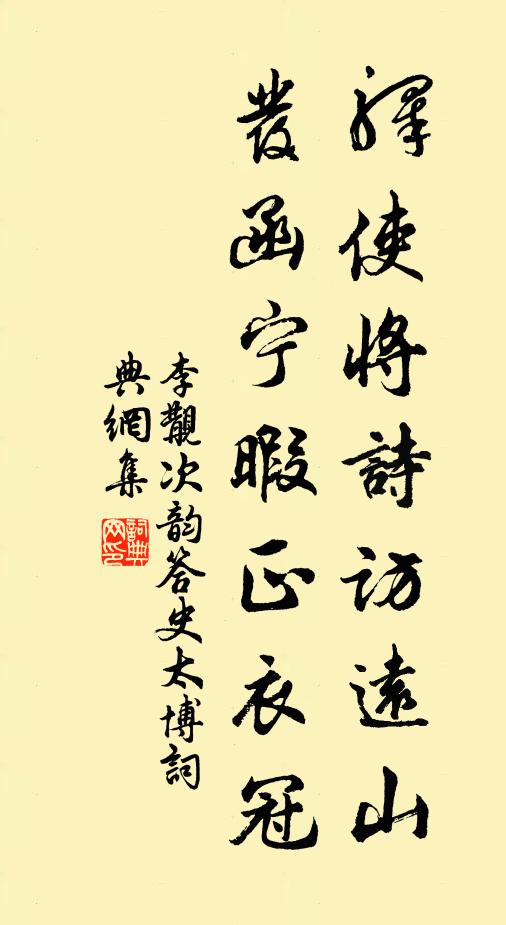 驛使將詩訪遠山
發函宁暇正衣冠
李覯次韵答史太博詞
典網集
詞典網印